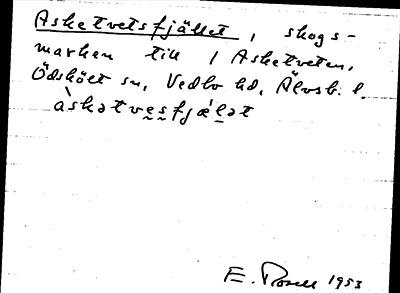 Asketvetsfjället, skogs-
marken till 1 Asketveten,
Ödsköet sn, Vedbo hd, Älvsb. l.
àskətve̬s̬fjæ̀l̬ət
E. 1953